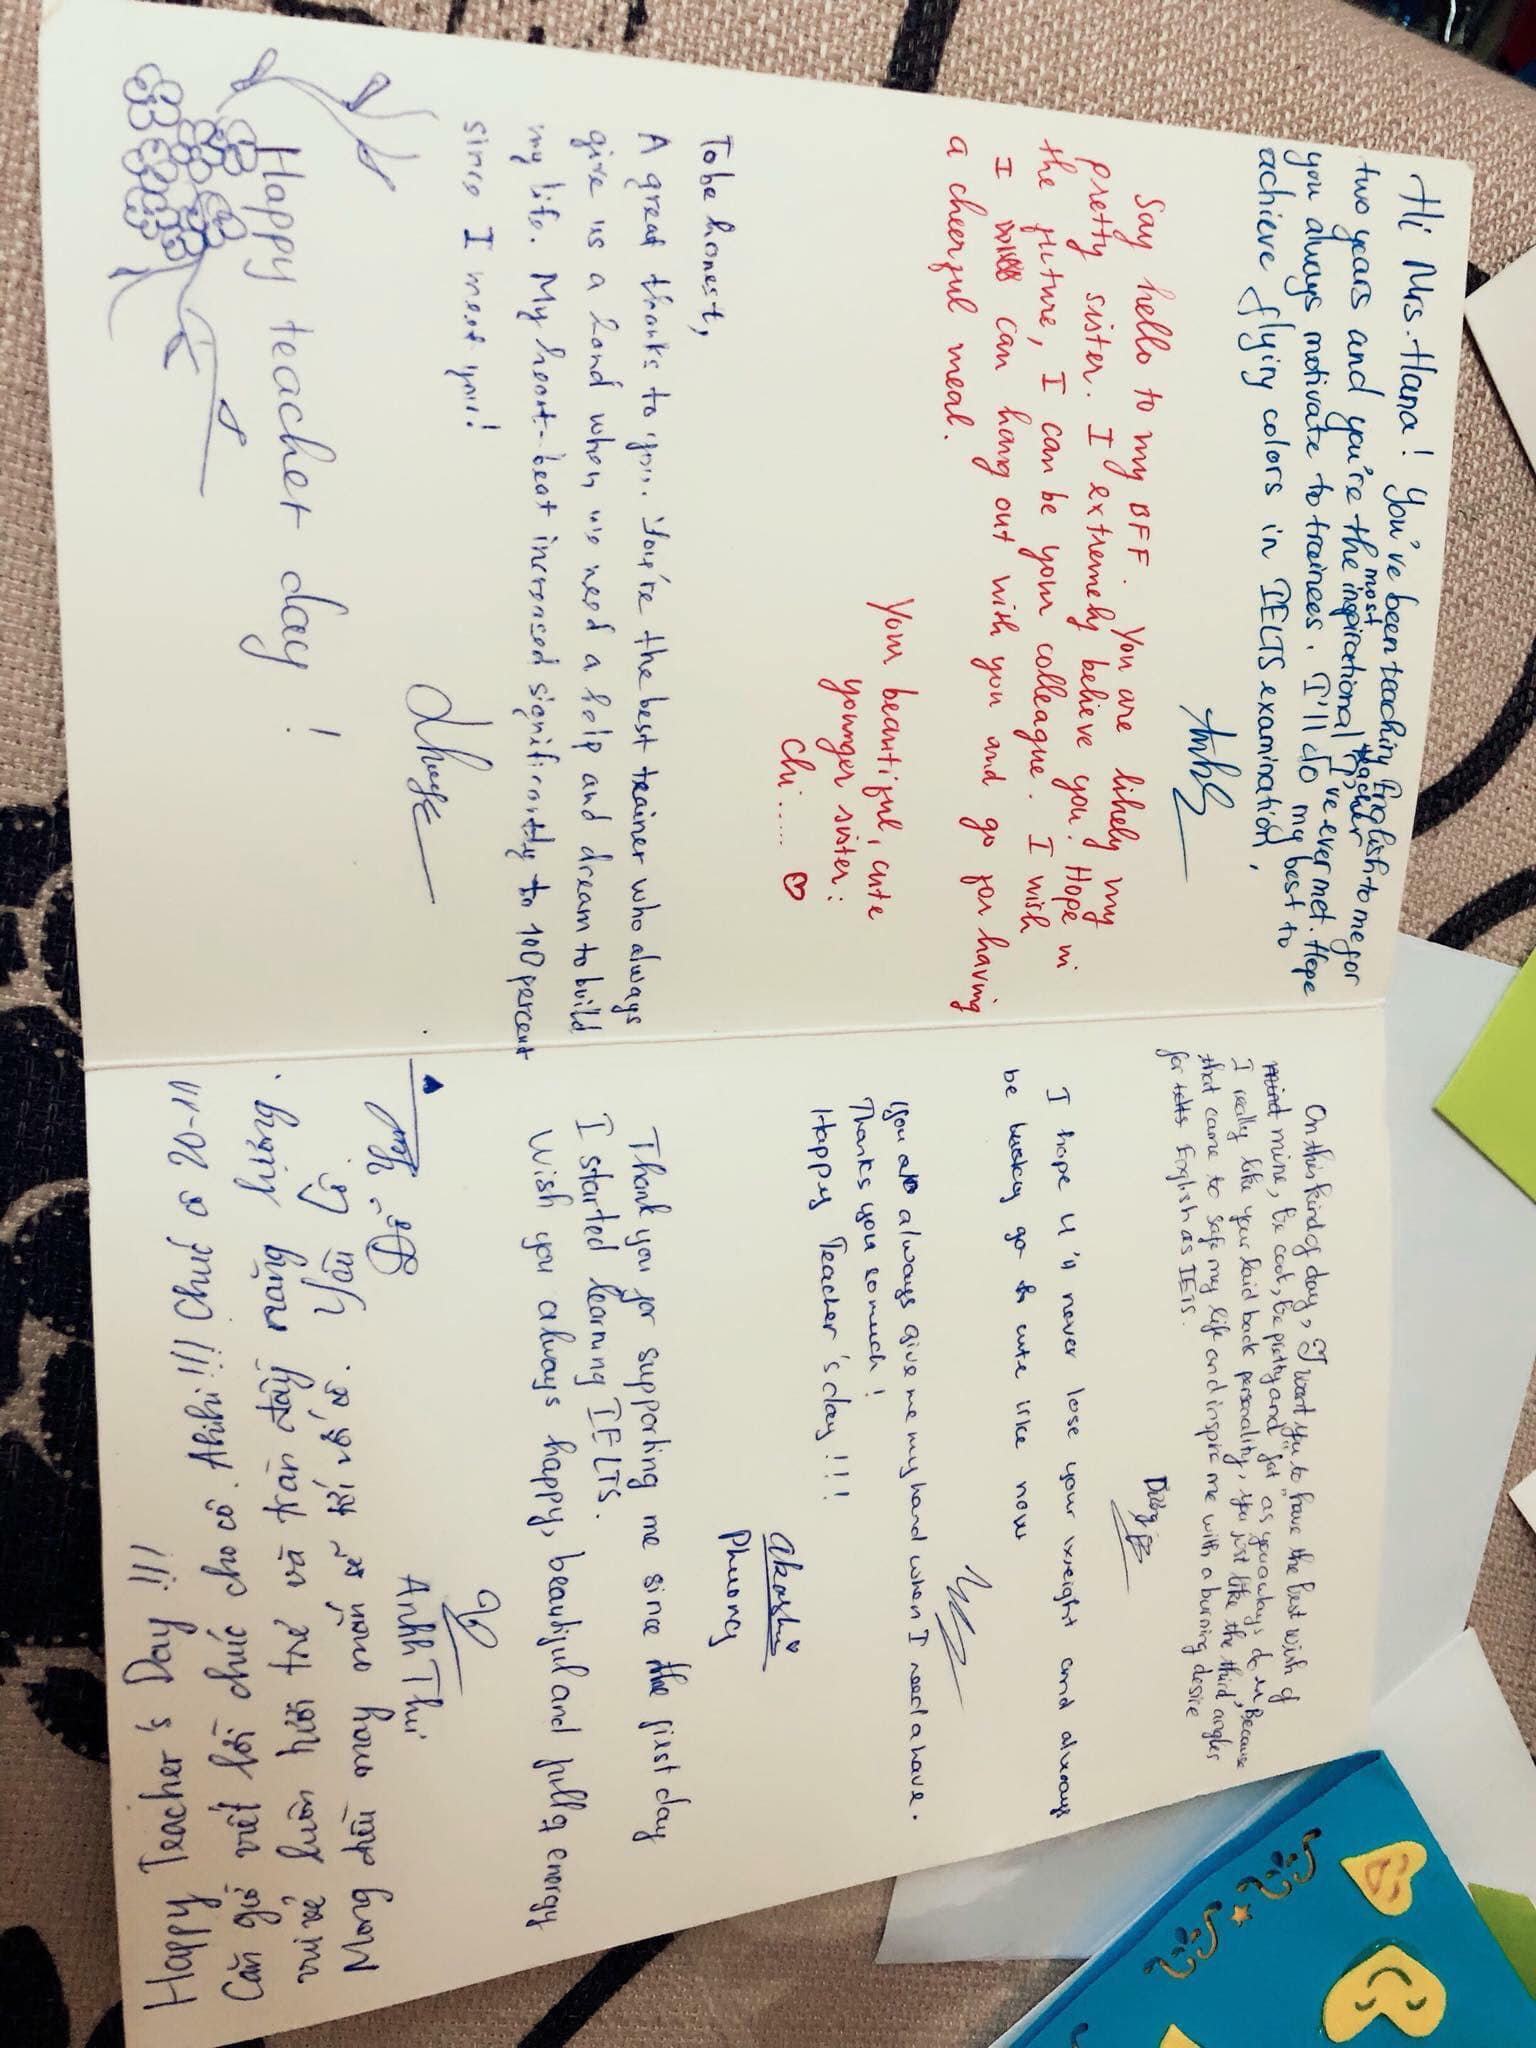 Hi Mrs. Hana! You've been teaching English to me for
two years and you're the most inspirational teacher I've ever met. Hope
you always motivate to trainees. I'll do my best to
achieve flying colors in IELTS examination.
Anh
Say hello to my BFF. You are likely my
pretty sister. I extremely believe you! Hope in
the future, I can be your colleague. I wish
I can hang out with you and go for having
a cheerful meal.
Your beautiful, cute
younger sister:
Chi..... ♡
To be honest,
A great thanks to you. You're the best trainer who always
give us a hand when we need a help and dream to build
my life. My heart-beat increased significantly to 100 percent
since I meet you!
Happy teacher day!
On this kind of day, I want you to have the best wish of
mine, be cool, be pretty and "fat" as you always do in, Because
I really like your laid back personality, you just like the third angles
that came to safe my life and inspire me with a burning desire
for English as IETS.
Dũng
I hope u'll never lose your weight and always
be lucky go cute like now
You always give me my hand when I need a have.
Thanks you so much!
Happy Teacher's day!!!
Akashi
Phuong
Thank you for supporting me since the first day
I started learning IELTS.
Wish you always happy, beautiful and fully energy
Anhh Thư
Happy Teacher's Day!!!
Căn giờ viết lời chúc cho cô. Ahihi!!! Chúc cô 20-11
vui vẻ luôn tươi trẻ và tràn đầy năng lượng.
Mong điều may mắn sẽ tới với cô. Yêu cô.